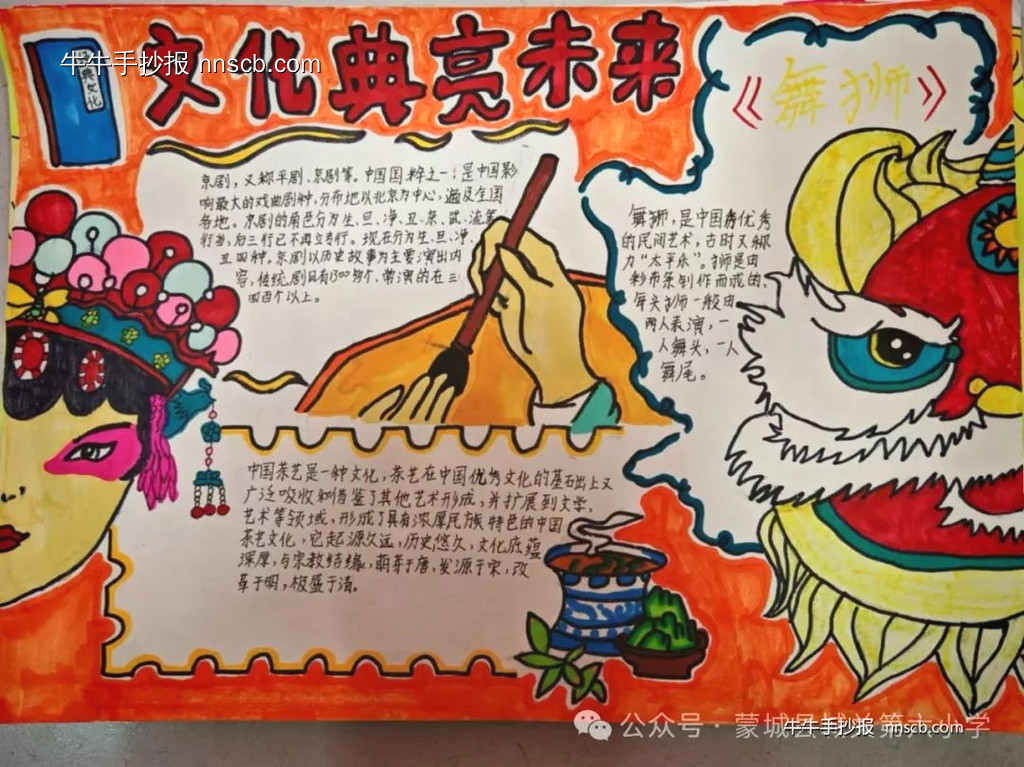 牛牛手抄报 nnscb.com
典文化
文化典亮未来
《舞狮》
京剧,又称平剧、京剧等。中国国粹之一,是中国影
响最大的戏曲剧种,分布地以北京为中心,遍及全国
各地。京剧的角色分为生、旦、净、丑、杂、武、流等
行当,后三行已不再立专行。现在分为生、旦、净、
丑四种。京剧以历史故事为主要演出内
容,传统剧目有1300多个,常演的在三
四百个以上。
舞狮,是中国优秀
的民间艺术,古时又称
为“太平乐”。狮是由
彩布条制作而成的、
每头狮一般由
两人表演,一
人舞头,一人
舞尾。
中国茶艺是一种文化,茶艺在中国优秀文化的基础上又
广泛吸收和借鉴了其他艺术形成,并扩展到文学,
艺术等领域,形成了具有浓厚民族特色的中国
茶艺文化,它起源久远,历史悠久,文化底蕴
深厚,与宗教结缘,萌芽于唐,发源于宋,改
革于明,极盛于清。
公众号·蒙城县第六小学
牛牛手抄报 nnscb.com